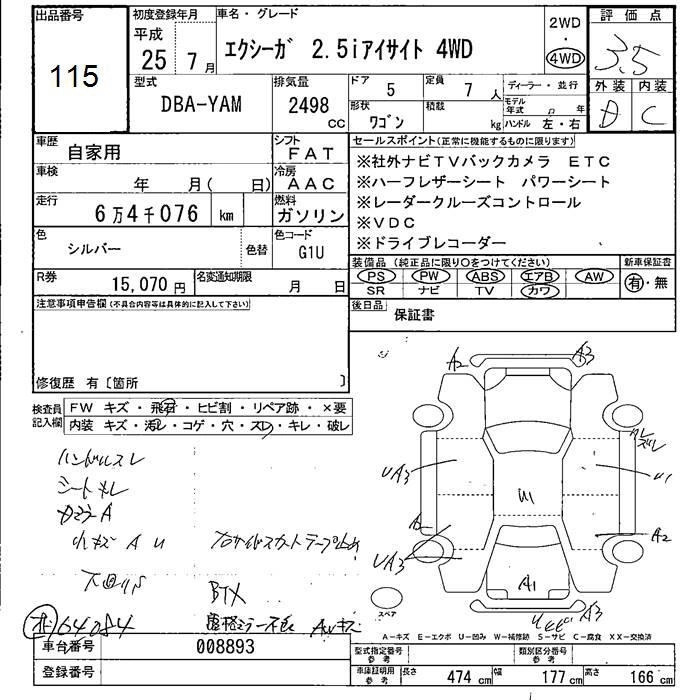 出品番号
115
初度登録年月
平成
25年 7月
車名・グレード
エクシーガ 2.5iアイサイト 4WD
2WD
・
4WD
評価点
3.5
外装 内装
D C
型式
DBA-YAM
排気量
2498 CC
ドア 5
定員 7人
ディーラー・並行
形状 ワゴン
積載 kg
モデル年式 年
ハンドル 左・右
車歴
自家用
シフト
FAT
車検
年 月( 日)
冷房
AAC
走行
6万4千076 km
燃料
ガソリン
色
シルバー
色替
色コード
G1U
R券
15,070円
名変通知期限
月 日
セールスポイント(正常に機能するものに限ります)
※社外ナビTVバックカメラ ETC
※ハーフレザーシート パワーシート
※レーダークルーズコントロール
※VDC
※ドライブレコーダー
装備品 (純正品に限り○をつけてください)
PS PW ABS エアB AW
SR ナビ TV カワ
新車保証書
有・無
後日品
保証書
注意事項申告欄(不具合内容等は具体的に記入して下さい)
修復歴 有〔箇所 〕
検査員記入欄
FW キズ・飛石・ヒビ割・リペア跡・×要
内装 キズ・汚レ・コゲ・穴・スレ・キレ・破レ
ハンドルスレ
シート
小キズ A U
下回りS
64084
A2 A3
UA3
U1
U1
A2
UA3
A1
A3
スペア
A-キズ E-エクボ U-凹み W-補修跡 S-サビ C-腐食 XX-交換済
車台番号
008893
登録番号
型式指定番号 参考
類別区分番号 参考
車庫証明用 参考
長さ 474cm
幅 177cm
高さ 166cm